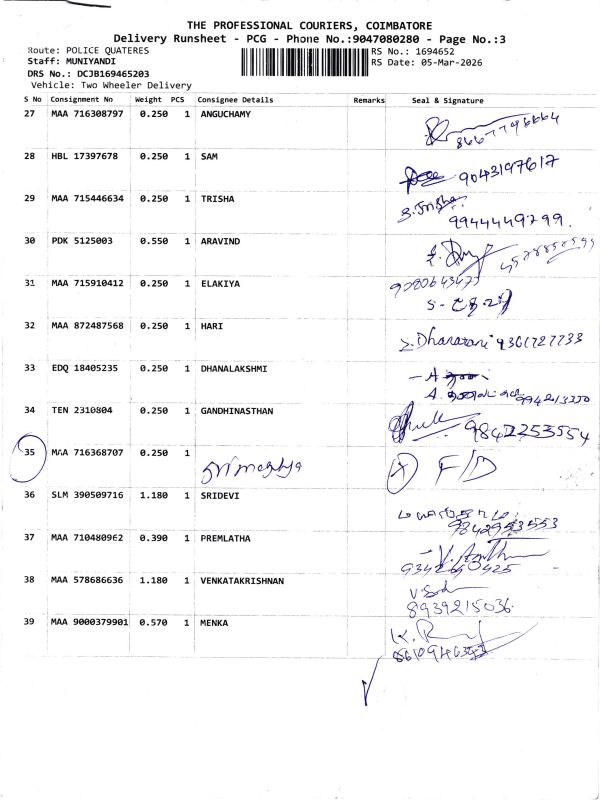 THE PROFESSIONAL COURIERS, COIMBATORE
Delivery Runsheet - PCG - Phone No.:9047080280 - Page No.:3
Route: POLICE QUATERES
RS No.: 1694652
Staff: MUNIYANDI
RS Date: 05-Mar-2026
DRS No.: DCJB169465203
Vehicle: Two Wheeler Delivery
S No Consignment No Weight PCS Consignee Details Remarks Seal & Signature
27 MAA 716308797 0.250 1 ANGUCHAMY
8667796664
28 HBL 17397678 0.250 1 SAM
9043197617
29 MAA 715446634 0.250 1 TRISHA
S. Trisha
9944449799.
30 PDK 5125003 0.550 1 ARAVIND
31 MAA 715910412 0.250 1 ELAKIYA
32 MAA 872487568 0.250 1 HARI
S. Dharatani 9361727733
33 EDQ 18405235 0.250 1 DHANALAKSHMI
9942413350
34 TEN 2310804 0.250 1 GANDHINASTHAN
9842253554
35 MAA 716368707 0.250 1 F/D
36 SLM 390509716 1.180 1 SRIDEVI
37 MAA 710480962 0.390 1 PREMLATHA
38 MAA 578686636 1.180 1 VENKATAKRISHNAN
8939215036
39 MAA 9000379901 0.570 1 MENKA